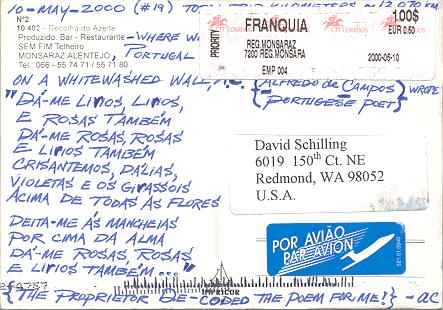 10-MAY-2000 (#19) KILOMETERS
Nº2
10 402 - Recolha do Azeite
Produzido. Bar - Restaurante - WHERE
SEM FIM Telheiro
MONSARAZ ALENTEJO, PORTUGAL
Tel. 066 - 55 74 71 / 55 71 80
PRIORITY
FRANQUIA
REG.MONSARAZ
7200 REG.MONSARA
EMP 004
CTT CORREIOS
100$
EUR 0.50
2000-05-10
ON A WHITEWASHED WALL, (ALFREDO de CAMPOS) WROTE
{PORTUGESE POET}
"DÁ-ME LIRIOS, LIRIOS,
E ROSAS TAMBÉM
DÁ-ME ROSAS, ROSAS
E LIRIOS TAMBÉM
CRISANTEMOS, DÁLIAS,
VIOLETAS E OS GIRASSÓIS
ACIMA DE TODAS AS FLORES
DEITA-ME ÀS MANCHEIAS
POR CIMA DA ALMA
DÁ-ME ROSAS, ROSAS
E LIRIOS TAMBÉM..."
{THE PROPRIETOR DE-CODED THE POEM FOR ME!} - AC
David Schilling
6019 150th Ct. NE
Redmond, WA 98052
U.S.A.
POR AVIÃO
PAR AVION